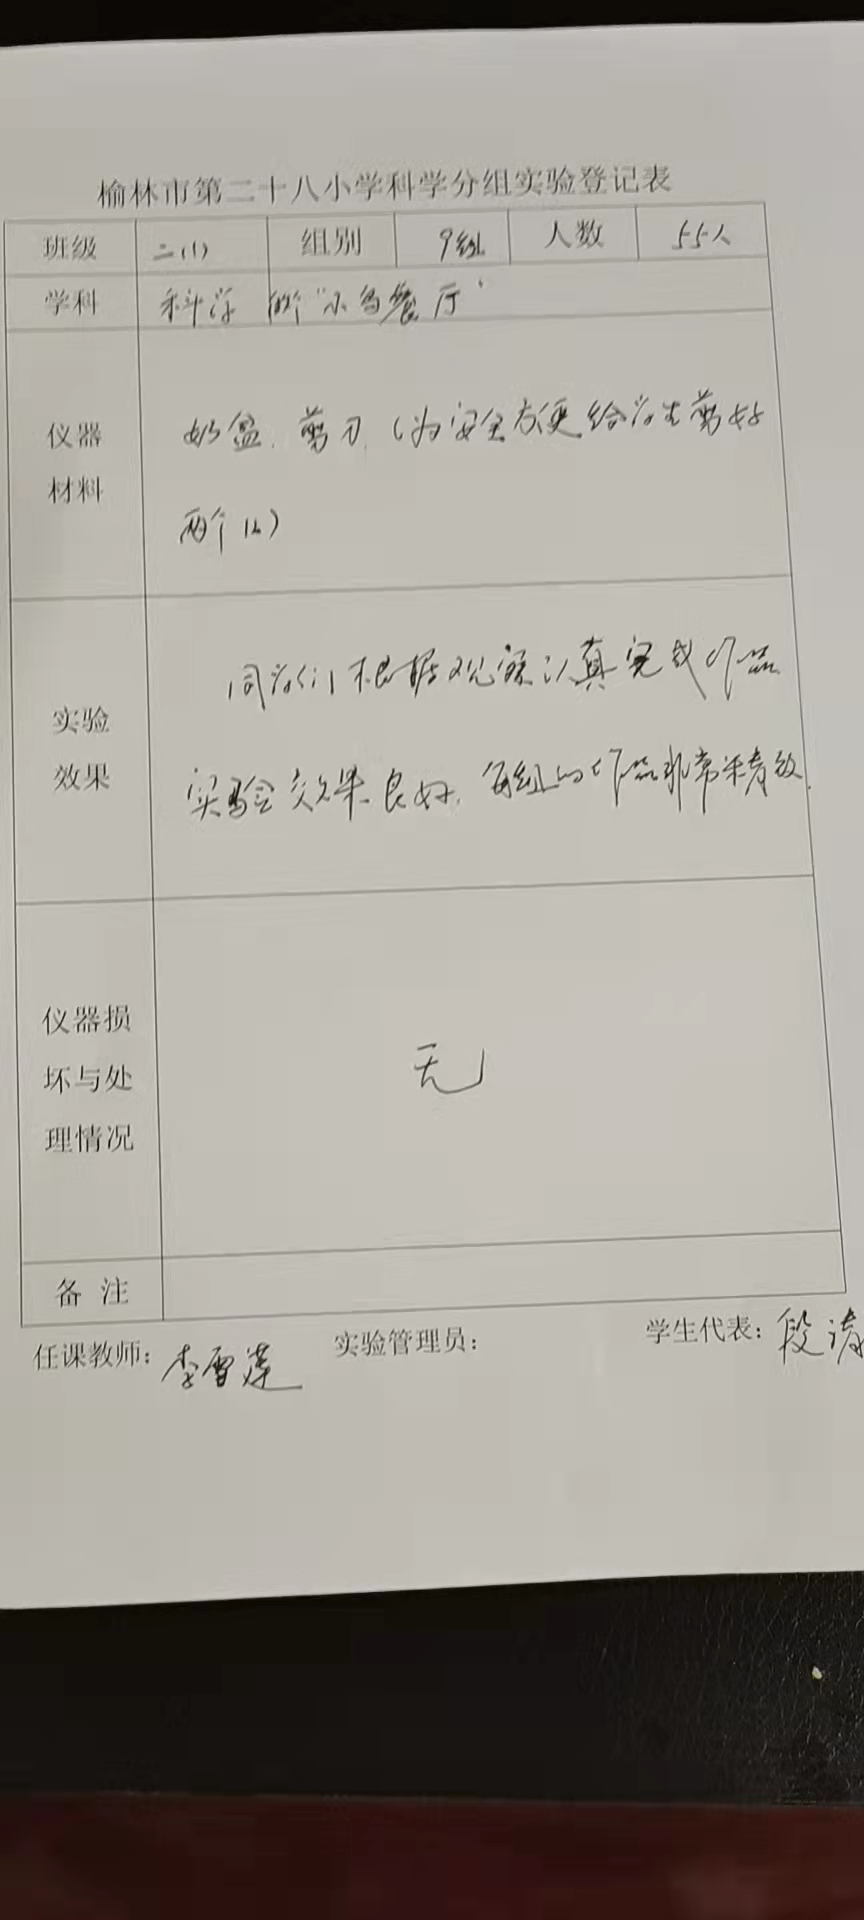 榆林市第二十八小学科学分组实验登记表
班级 二(1) 组别 9组 人数 55人
学科 科学 做个"小鸟餐厅"
仪器材料
奶盒、剪刀、(为安全方便给学生剪好
两个口)
实验效果
同学们根据观察认真完成作品
实验效果良好,每组的作品非常精致.
仪器损坏与处理情况
无
备 注
任课教师: 李雪莲 实验管理员: 学生代表: 段